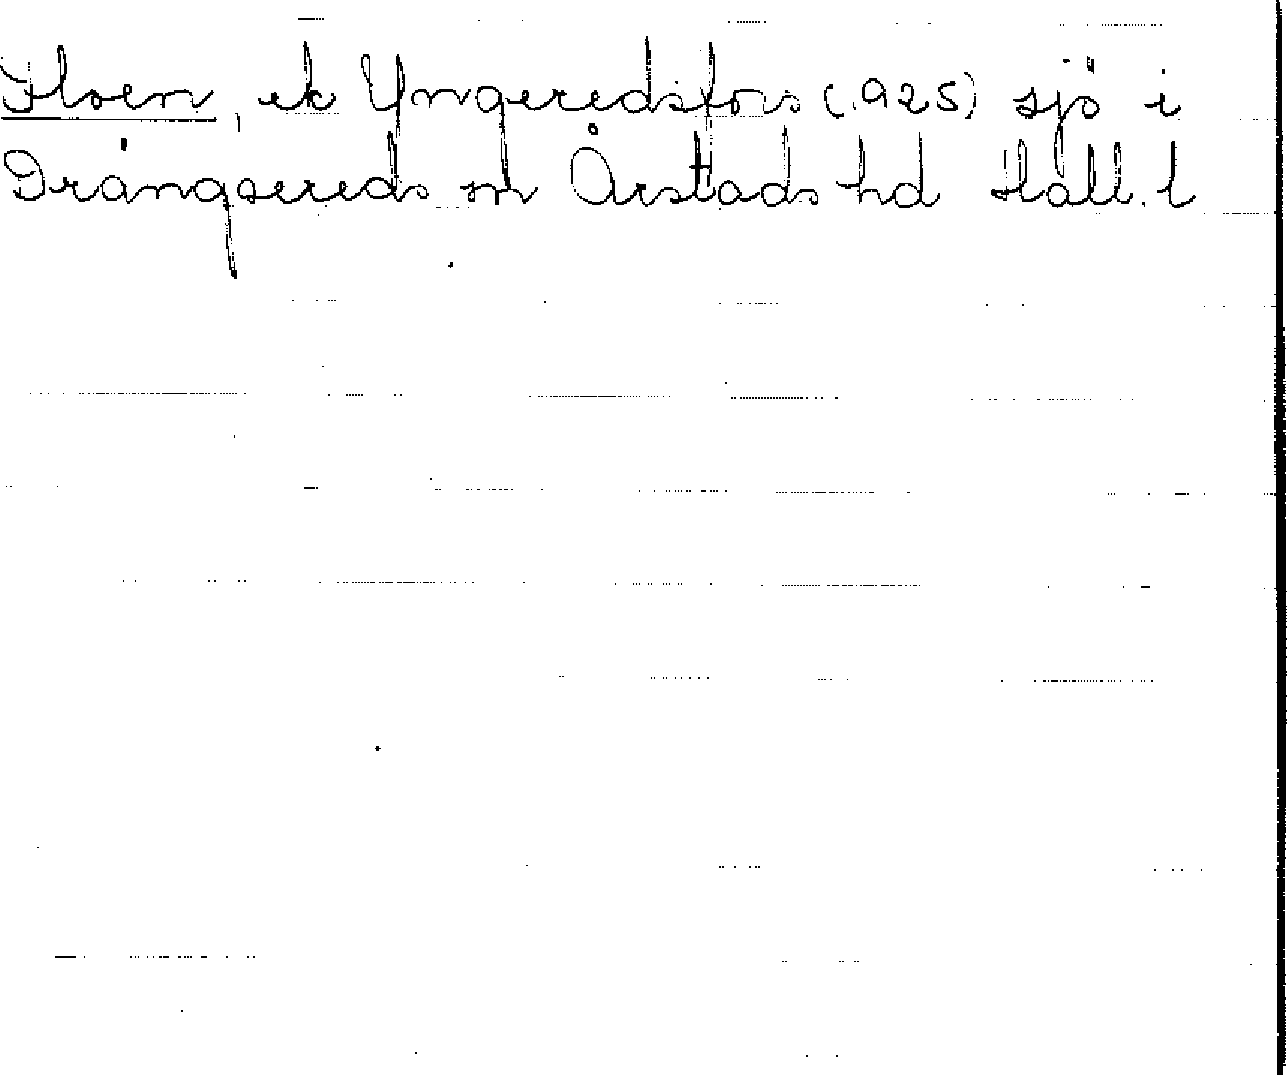 Floen, ek Yngeredsfors (1925) sjö i
Drängsereds sn Årstads hd Hall. l